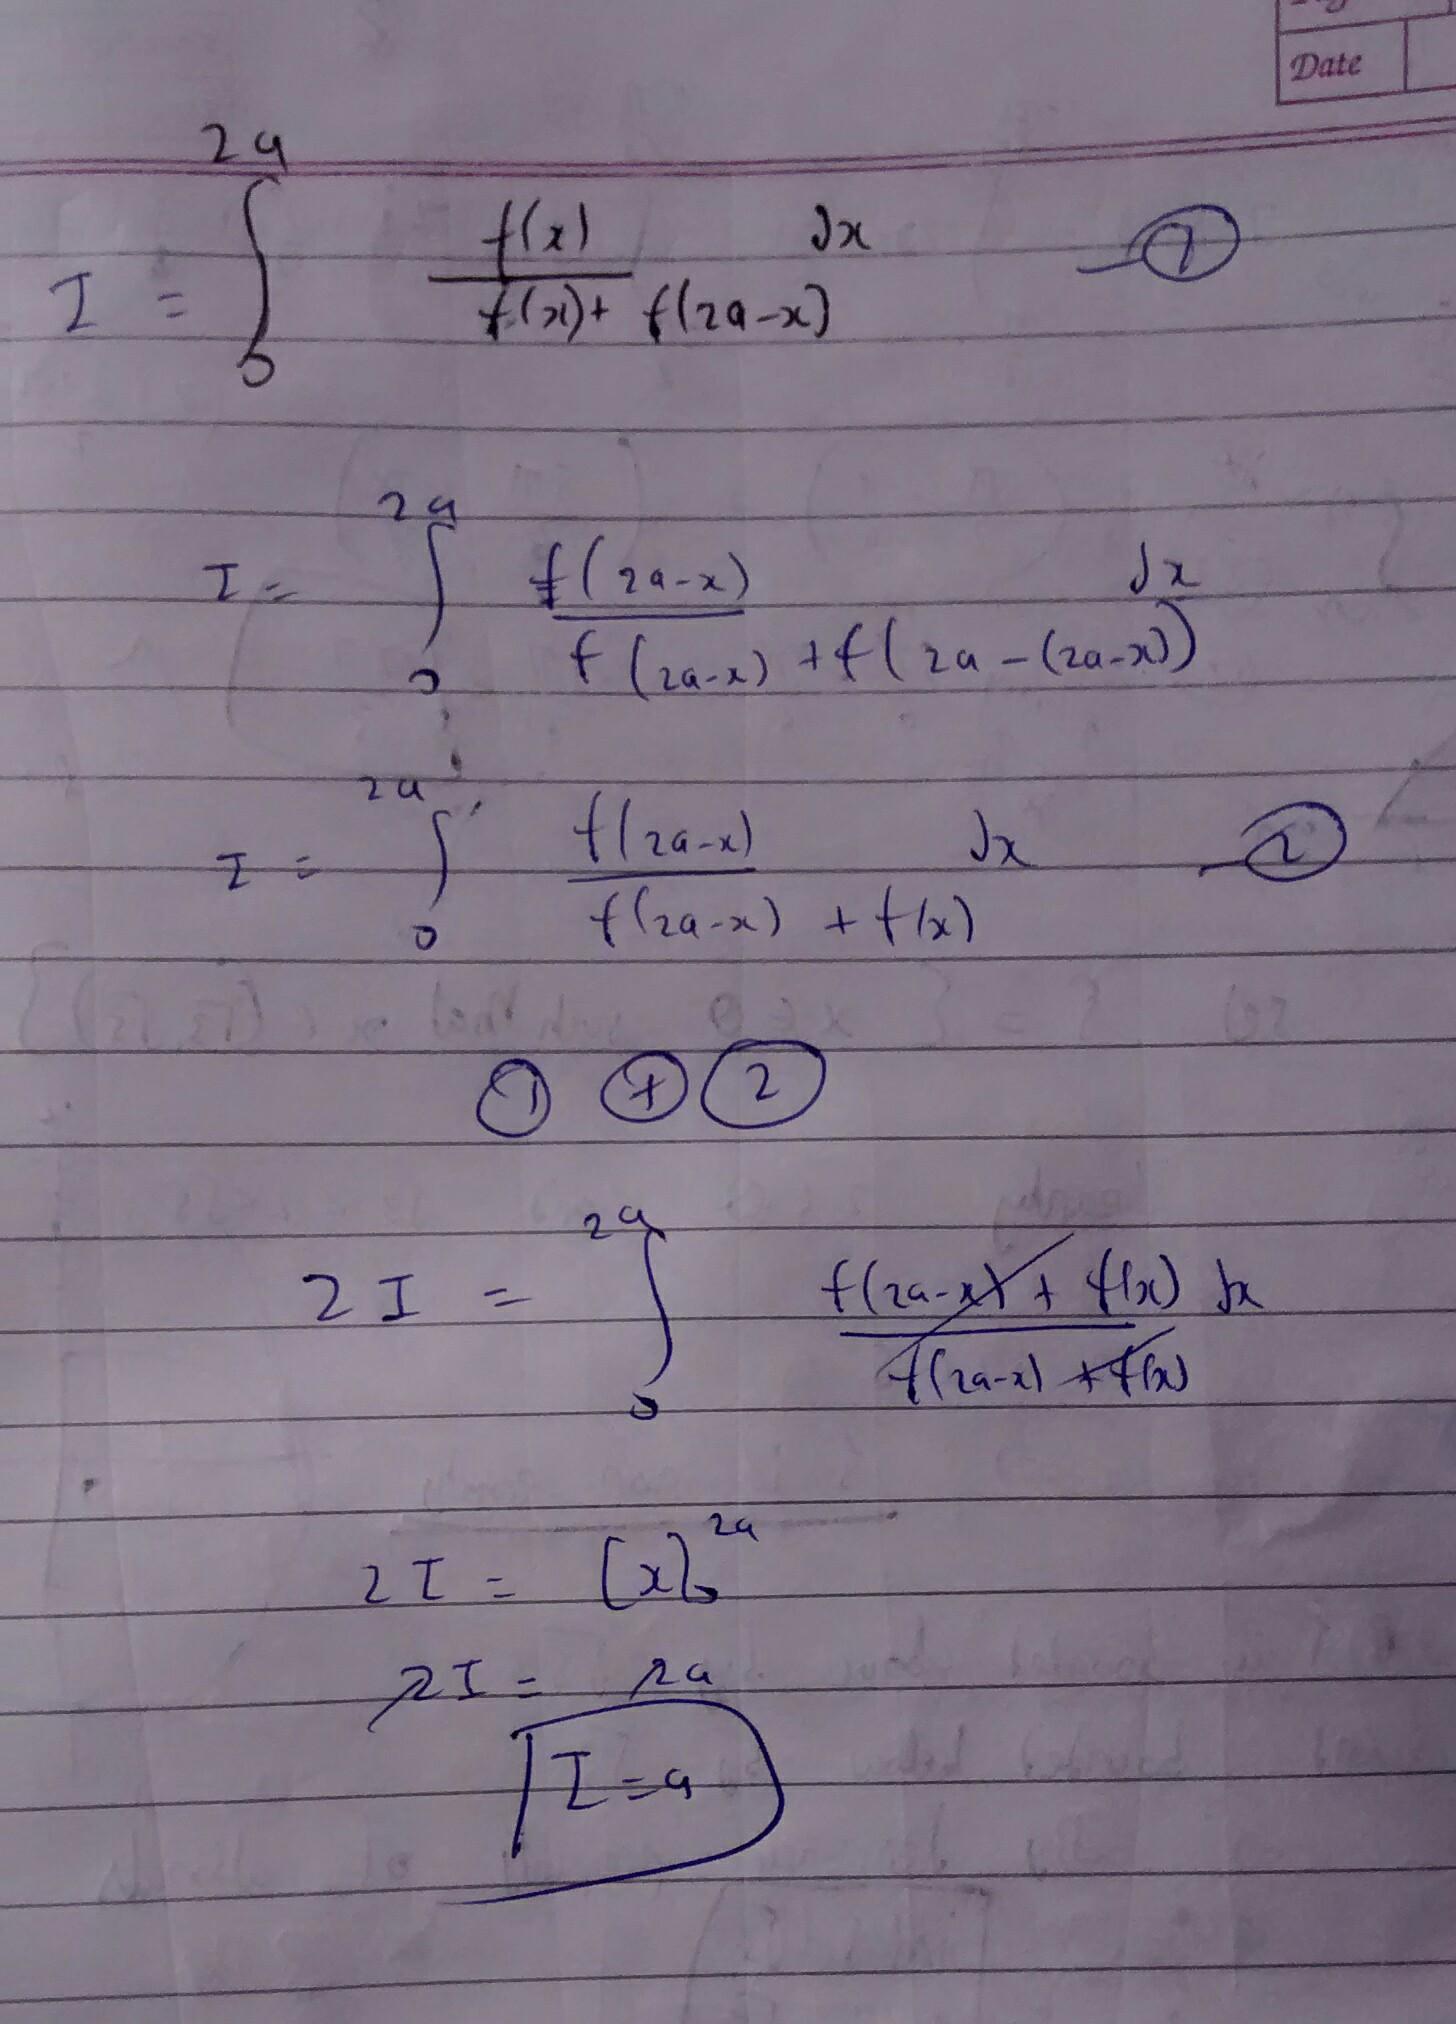 Date
I = ∫₀²ᵃ f(x) / (f(x) + f(2a-x)) dx —①
I = ∫₀²ᵃ f(2a-x) / (f(2a-x) + f(2a-(2a-x))) dx
I = ∫₀²ᵃ f(2a-x) / (f(2a-x) + f(x)) dx —②
① ⊕ ②
2I = ∫₀²ᵃ (f(2a-x) + f(x)) / (f(2a-x) + f(x)) dx
2I = [x]₀²ᵃ
2I = 2a
I = a